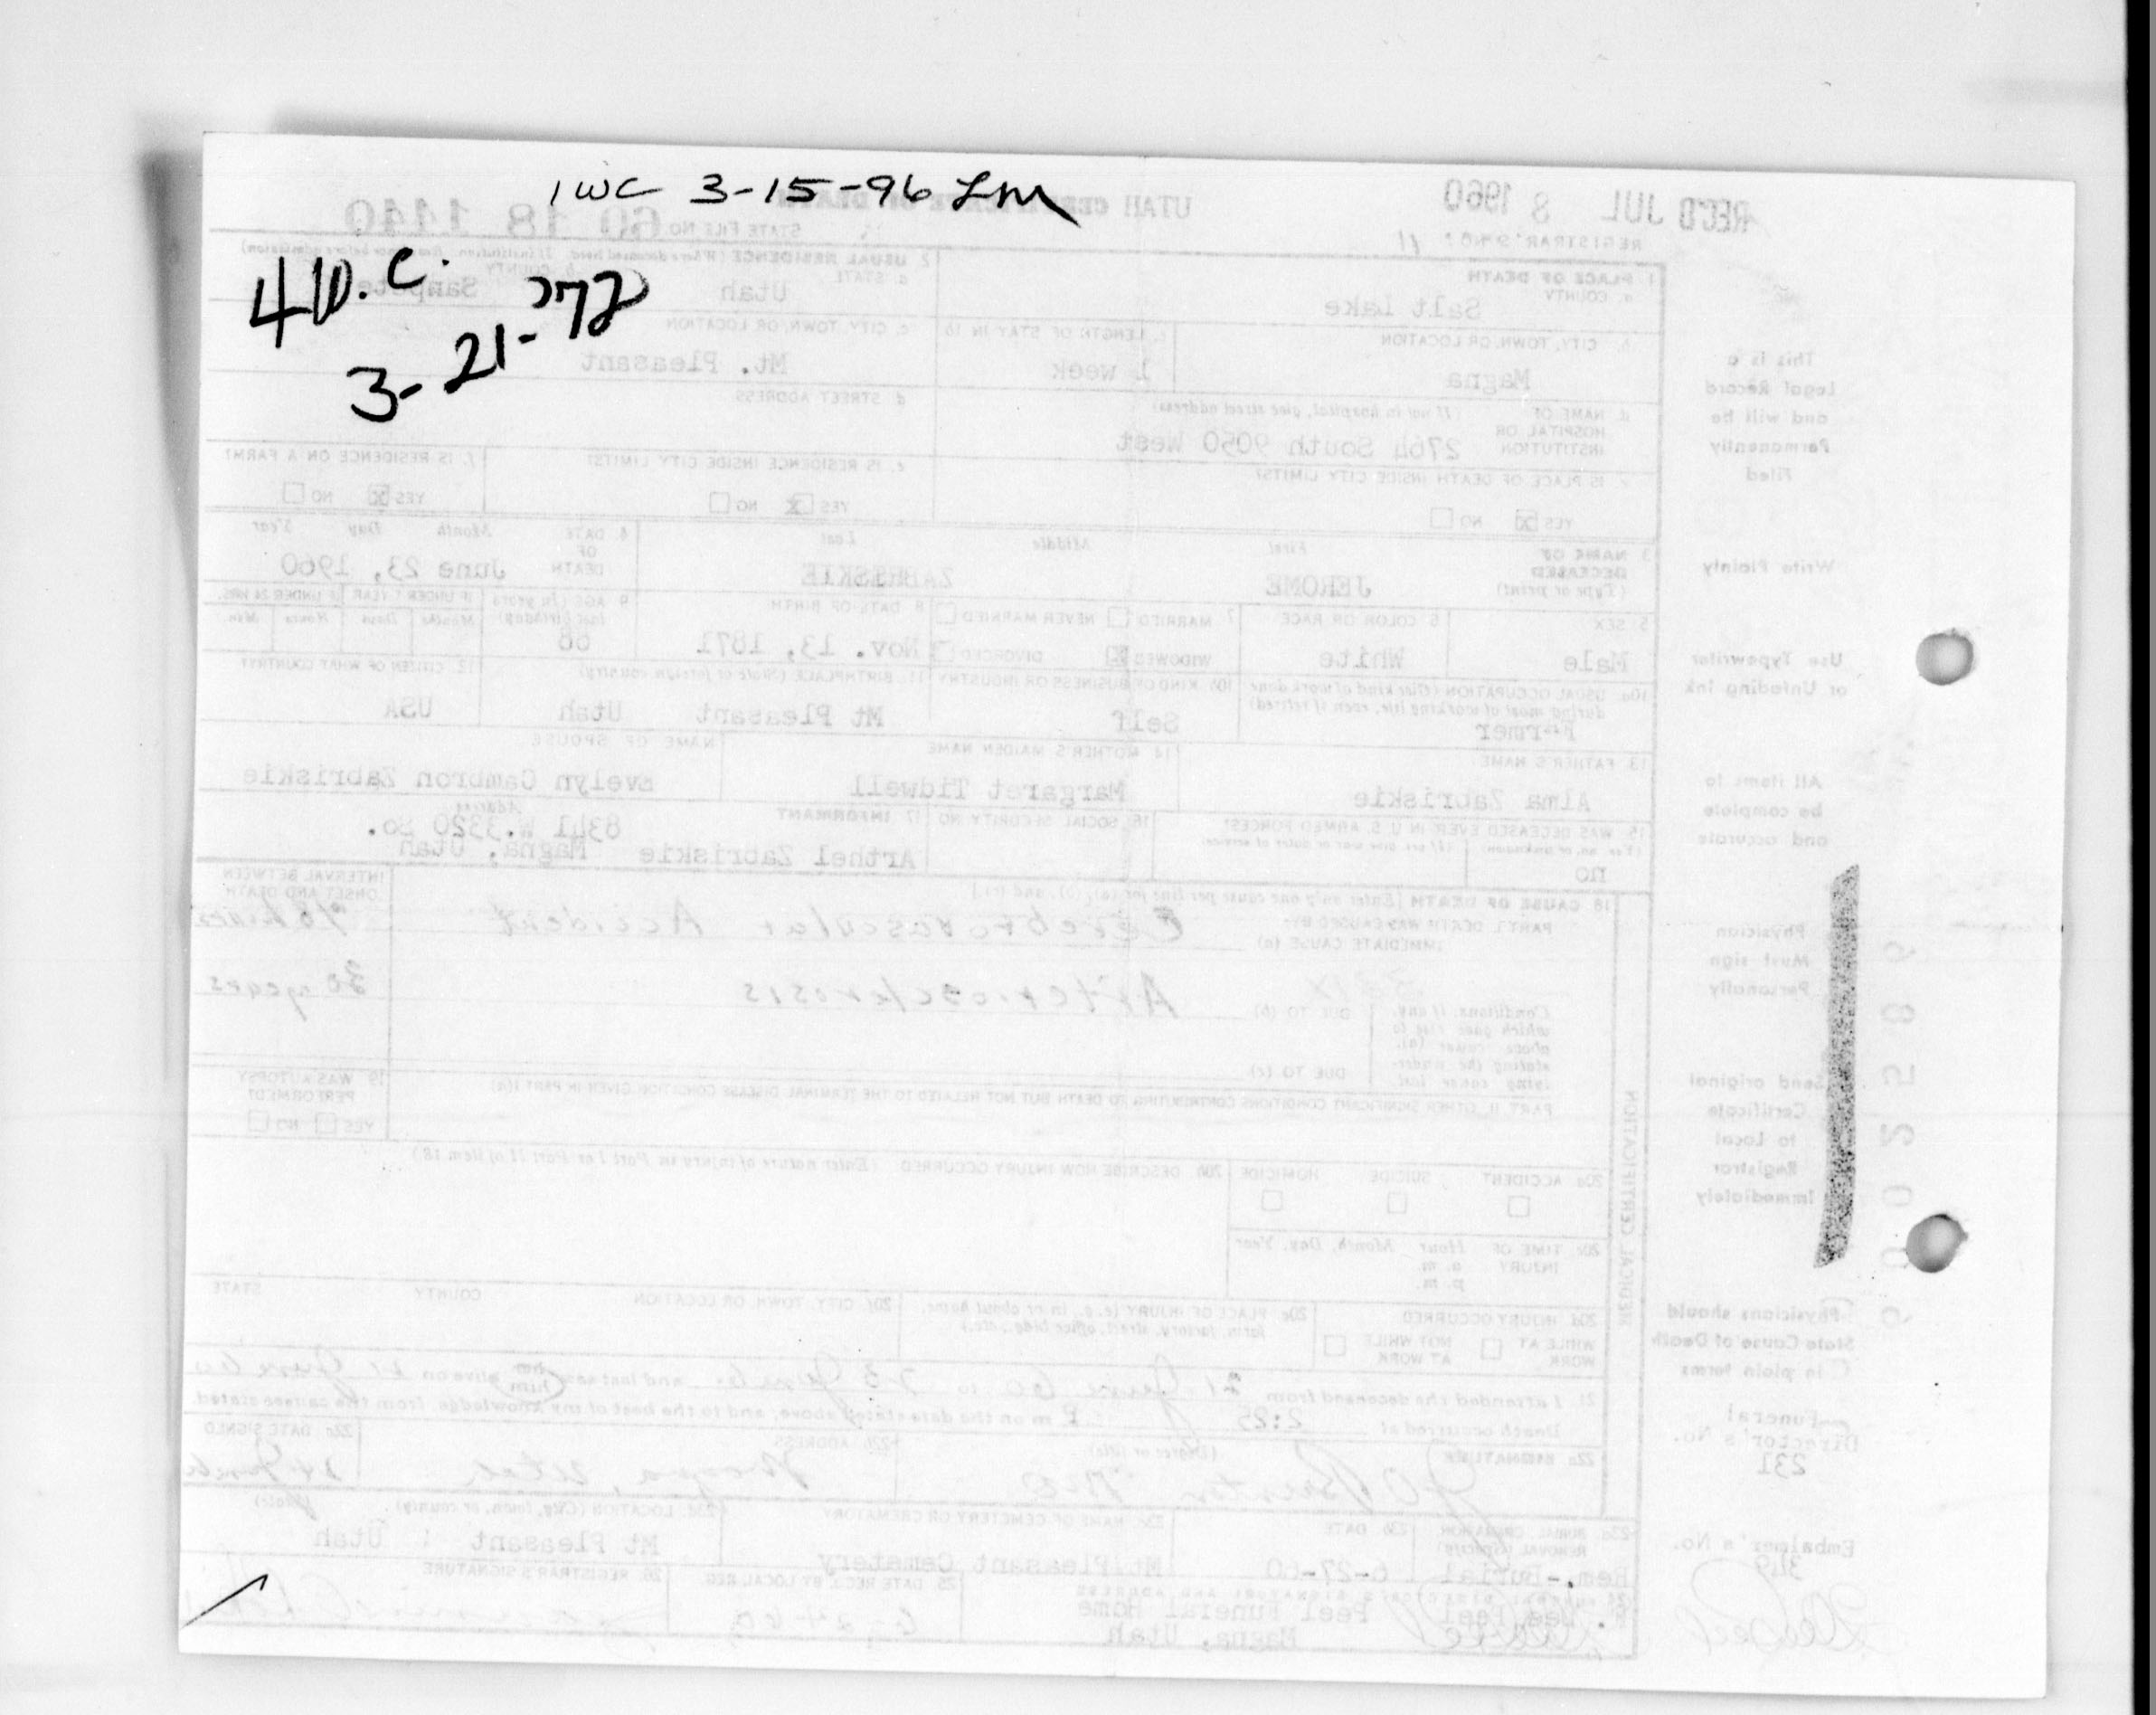 1WC 3-15-96 LM
4 D.C.
3-21-72
REC'D JUL 8 1960
UTAH CERTIFICATE OF DEATH
REGISTRAR'S NO. 11
STATE FILE NO. 60 18 1440
1. PLACE OF DEATH
a. COUNTY Salt Lake
2. USUAL RESIDENCE (Where deceased lived. If institution: Residence before admission)
a. STATE Utah
b. COUNTY Sanpete
b. CITY, TOWN, OR LOCATION Magna
c. LENGTH OF STAY IN 1b 1 week
c. CITY, TOWN, OR LOCATION Mt. Pleasant
d. NAME OF HOSPITAL OR INSTITUTION (If not in hospital, give street address)
2764 South 9050 West
d. STREET ADDRESS
e. IS PLACE OF DEATH INSIDE CITY LIMITS?
YES X NO
e. IS RESIDENCE INSIDE CITY LIMITS?
YES X NO
f. IS RESIDENCE ON A FARM?
YES X NO
3. NAME OF DECEASED (Type or print)
First Middle Last
JEROME ZABRISKIE
4. DATE OF DEATH Month Day Year
June 23, 1960
5. SEX Male
6. COLOR OR RACE White
7. MARRIED NEVER MARRIED
WIDOWED X DIVORCED
8. DATE OF BIRTH Nov. 13, 1871
9. AGE (In years last birthday) 88
IF UNDER 1 YEAR Months Days
IF UNDER 24 HRS. Hours Min.
10a. USUAL OCCUPATION (Give kind of work done during most of working life, even if retired)
Farmer
10b. KIND OF BUSINESS OR INDUSTRY
Self
11. BIRTHPLACE (State or foreign country)
Mt Pleasant Utah
12. CITIZEN OF WHAT COUNTRY?
USA
13. FATHER'S NAME
Alma Zabriskie
14. MOTHER'S MAIDEN NAME
Margaret Tidwell
NAME OF SPOUSE
Evelyn Cambron Zabriskie
15. WAS DECEASED EVER IN U.S. ARMED FORCES?
(Yes, no, or unknown) (If yes, give war or dates of service)
no
16. SOCIAL SECURITY NO.
17. INFORMANT Address
8341 W. 3320 So.
Arthel Zabriskie Magna, Utah
18. CAUSE OF DEATH [Enter only one cause per line for (a), (b), and (c).]
INTERVAL BETWEEN ONSET AND DEATH
PART I. DEATH WAS CAUSED BY:
IMMEDIATE CAUSE (a) Cerebrovascular Accident
Conditions, if any, which gave rise to above cause (a), stating the underlying cause last.
DUE TO (b) Arteriosclerosis 30 years
DUE TO (c)
PART II. OTHER SIGNIFICANT CONDITIONS CONTRIBUTING TO DEATH BUT NOT RELATED TO THE TERMINAL DISEASE CONDITION GIVEN IN PART I(a)
19. WAS AUTOPSY PERFORMED?
YES NO
20a. ACCIDENT SUICIDE HOMICIDE
20b. DESCRIBE HOW INJURY OCCURRED. (Enter nature of injury in Part I or Part II of item 18.)
20c. TIME OF INJURY Hour Month, Day, Year
a. m.
p. m.
20d. INJURY OCCURRED
WHILE AT WORK NOT WHILE AT WORK
20e. PLACE OF INJURY (e.g., in or about home, farm, factory, street, office bldg., etc.)
20f. CITY, TOWN, OR LOCATION COUNTY STATE
21. I attended the deceased from 21 June 60 to 23 June 60 and last saw him alive on 21 June 60
Death occurred at 2:25 P m on the date stated above, and to the best of my knowledge, from the causes stated.
22a. SIGNATURE (Degree or title) MD
22b. ADDRESS Magna, Utah
22c. DATE SIGNED
23a. BURIAL, CREMATION, REMOVAL (Specify)
Rem.-Burial
23b. DATE 6-27-60
23c. NAME OF CEMETERY OR CREMATORY
Mt Pleasant Cemetery
23d. LOCATION (City, town, or county) (State)
Mt Pleasant Utah
24. FUNERAL DIRECTOR'S SIGNATURE AND ADDRESS
Peel Funeral Home
Magna, Utah
25. DATE REC'D. BY LOCAL REG.
26. REGISTRAR'S SIGNATURE
MEDICAL CERTIFICATION
This is a
Legal Record
and will be
Permanently
Filed
Write Plainly
Use Typewriter
or Unfading Ink
All items to
be complete
and accurate
Physician
Must sign
Personally
Send original
Certificate
to Local
Registrar
Immediately
Physicians should
State Cause of Death
in plain terms
Funeral
Director's No.
231
Embalmer's No.
349